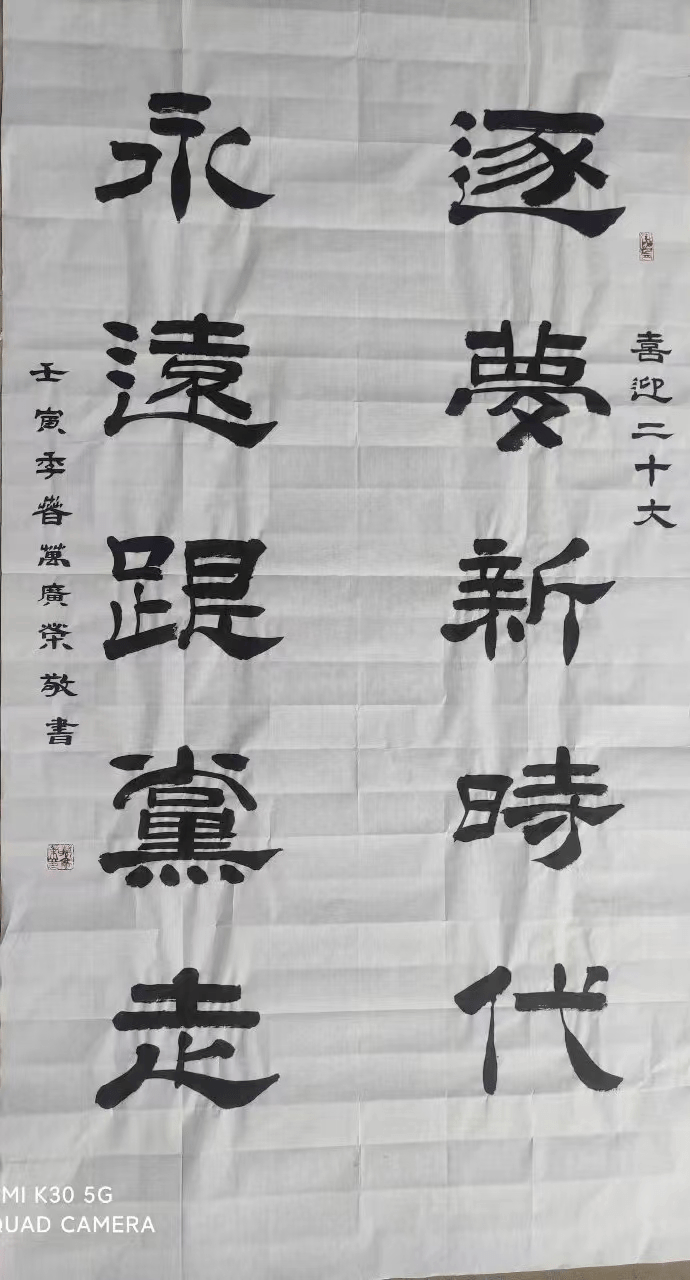 喜迎二十大
逐夢新時代
永遠跟黨走
壬寅季春萬廣榮敬書
MI K30 5G
QUAD CAMERA